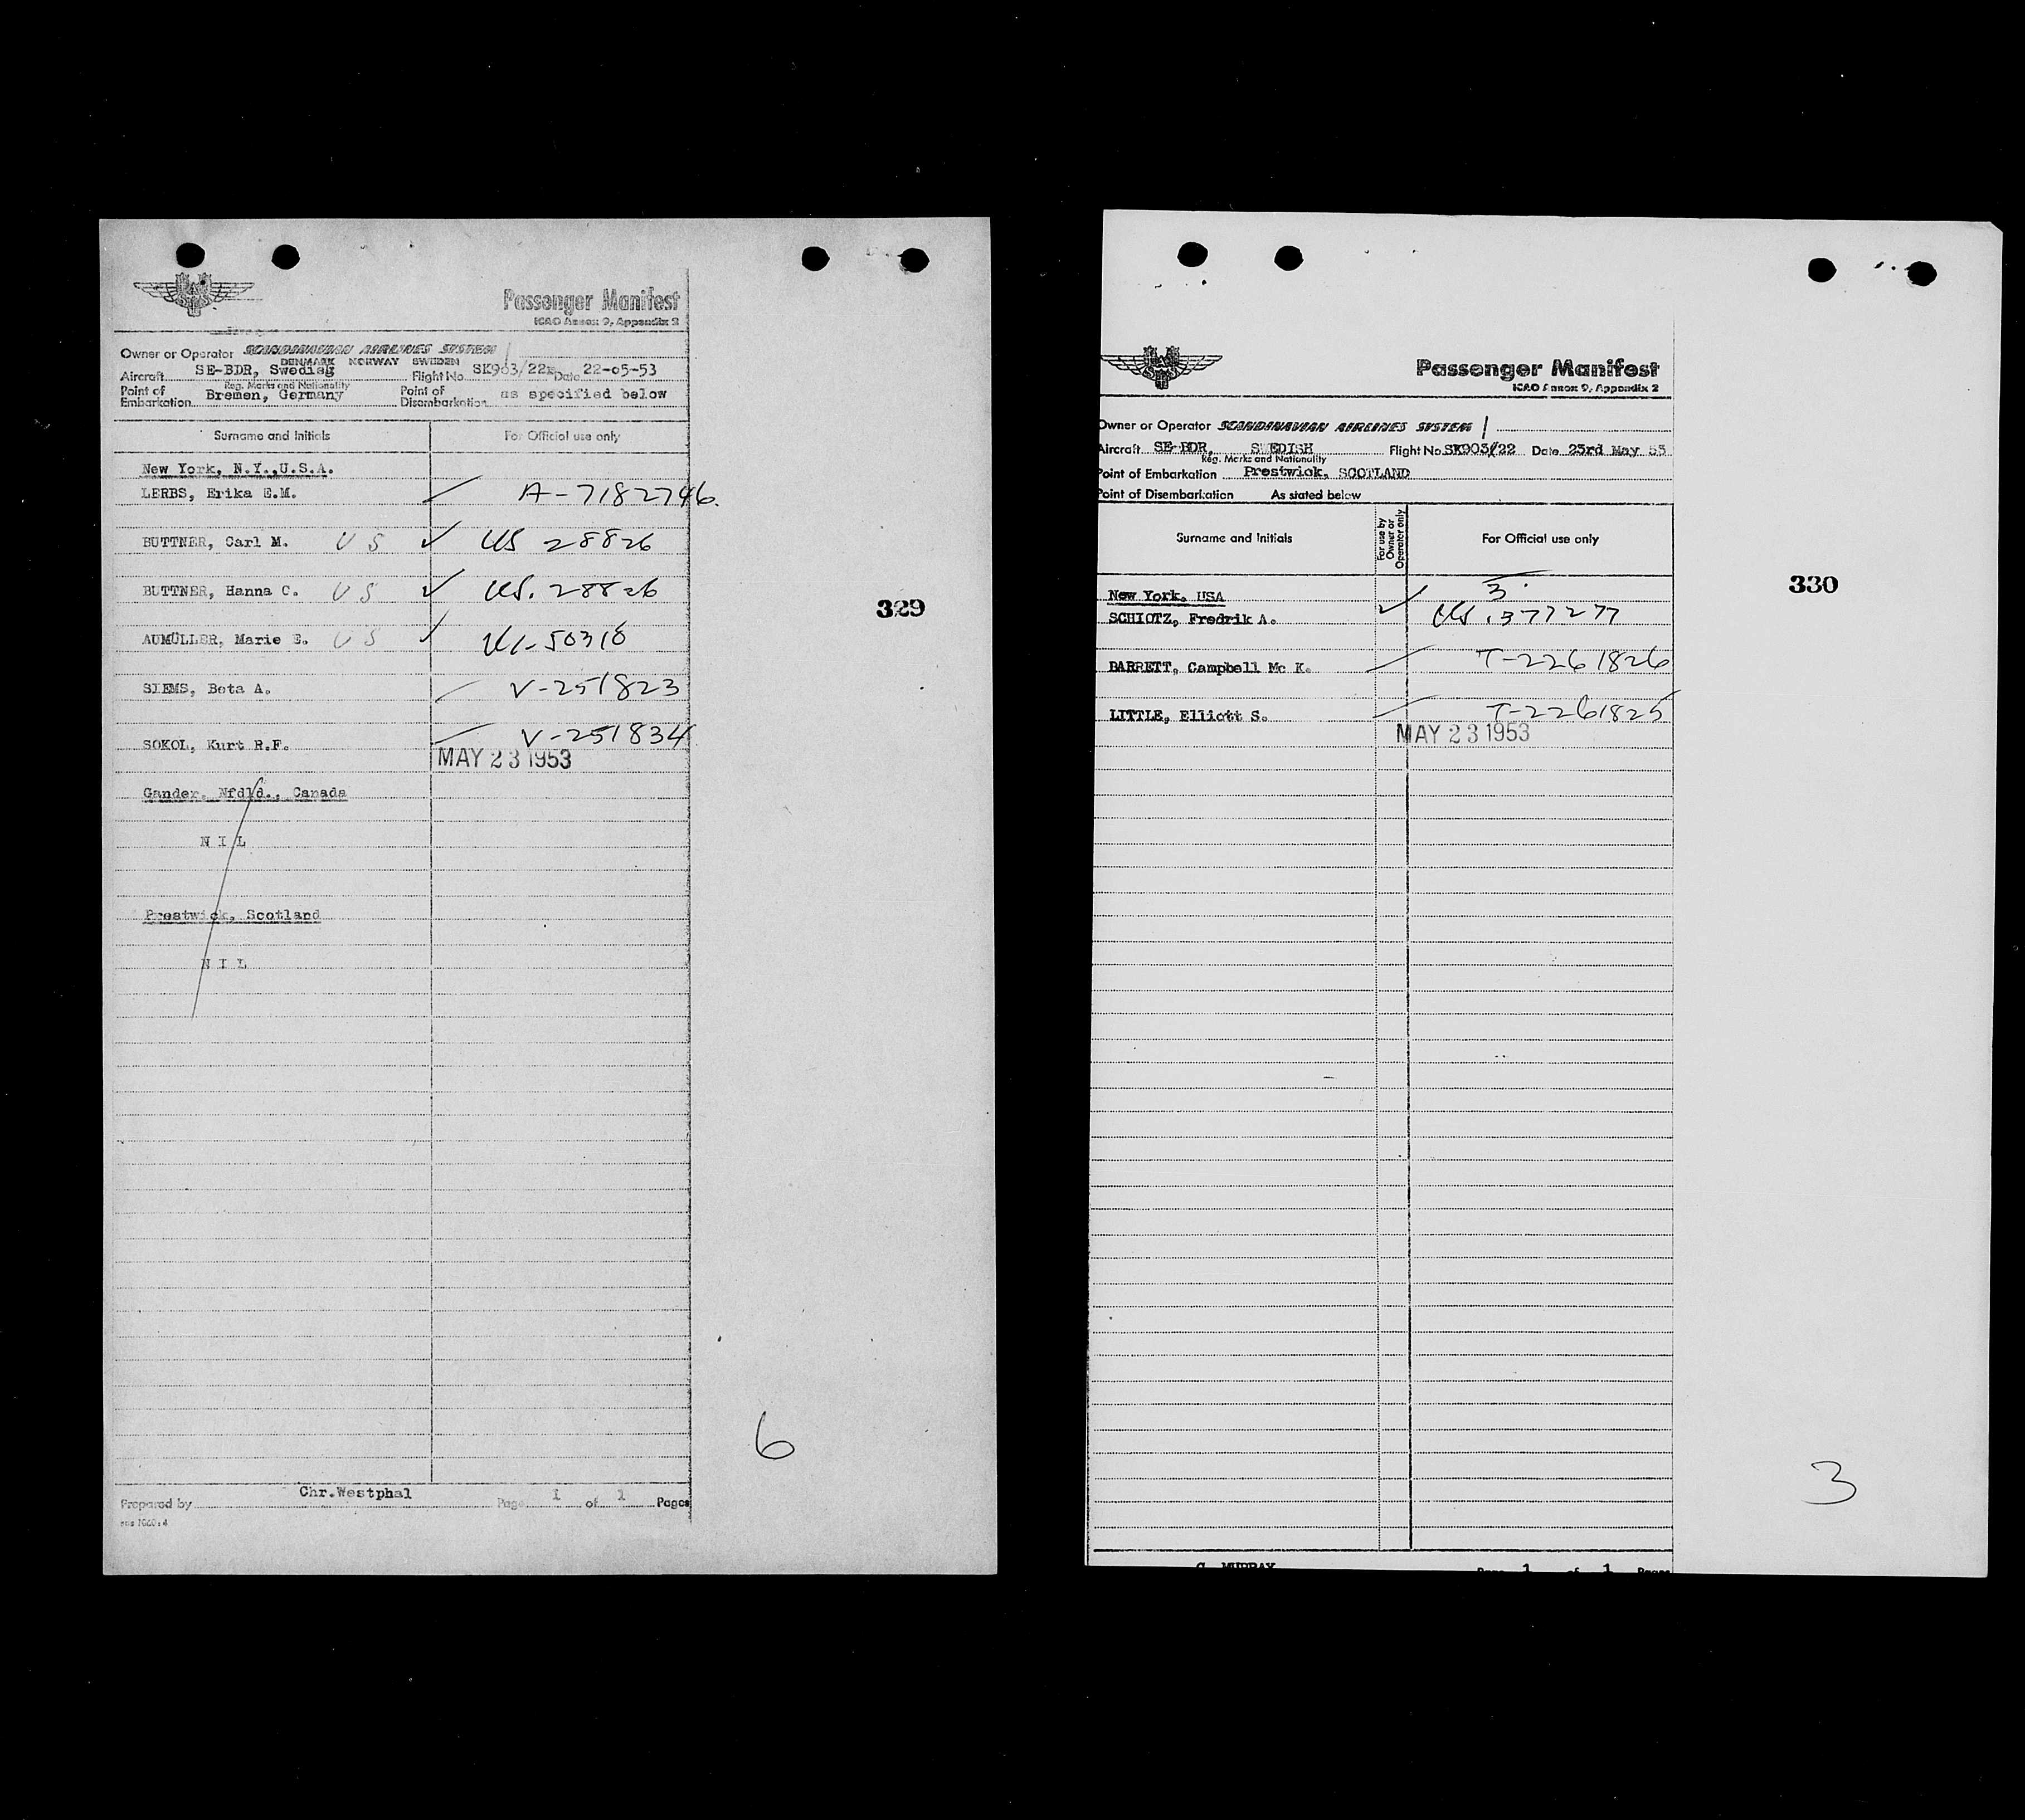 Passenger Manifest
ICAO Annex 9, Appendix 2
Owner or Operator SCANDINAVIAN AIRLINES SYSTEM
DENMARK NORWAY SWEDEN
Aircraft SE-BDR, Swedish Flight No. SK903/22 Date 22-05-53
Reg. Marks and Nationality
Point of Embarkation Bremen, Germany Point of Disembarkation as specified below
Surname and Initials For Official use only
New York, N.Y.,U.S.A.
LERBS, Erika E.M. A-7182746.
BUTTNER, Carl M. US US 28826
BUTTNER, Hanna C. US US. 28826
AUMÜLLER, Marie E. US 50318
SIEMS, Beta A. V-251823
SOKOL, Kurt R.F. V-251834
MAY 23 1953
Gander, Nfdld., Canada
N I L
Prestwick, Scotland
N I L
329
6
Prepared by Chr.Westphal Page 1 of 1 Pages
Passenger Manifest
ICAO Annex 9, Appendix 2
Owner or Operator SCANDINAVIAN AIRLINES SYSTEM
Aircraft SE-BDR, SWEDISH Flight No. SK903/22 Date 23rd May 53
Reg. Marks and Nationality
Point of Embarkation Prestwick, SCOTLAND
Point of Disembarkation As stated below
Surname and Initials For use by Owner or Operator only For Official use only
3
New York, USA
SCHIOTZ, Fredrik A. US.377277
BARRETT, Campbell Mc K. T-2261826
LITTLE, Elliott S. T-2261825
MAY 23 1953
330
3
G. MURRAY Page 1 of 1 Pages